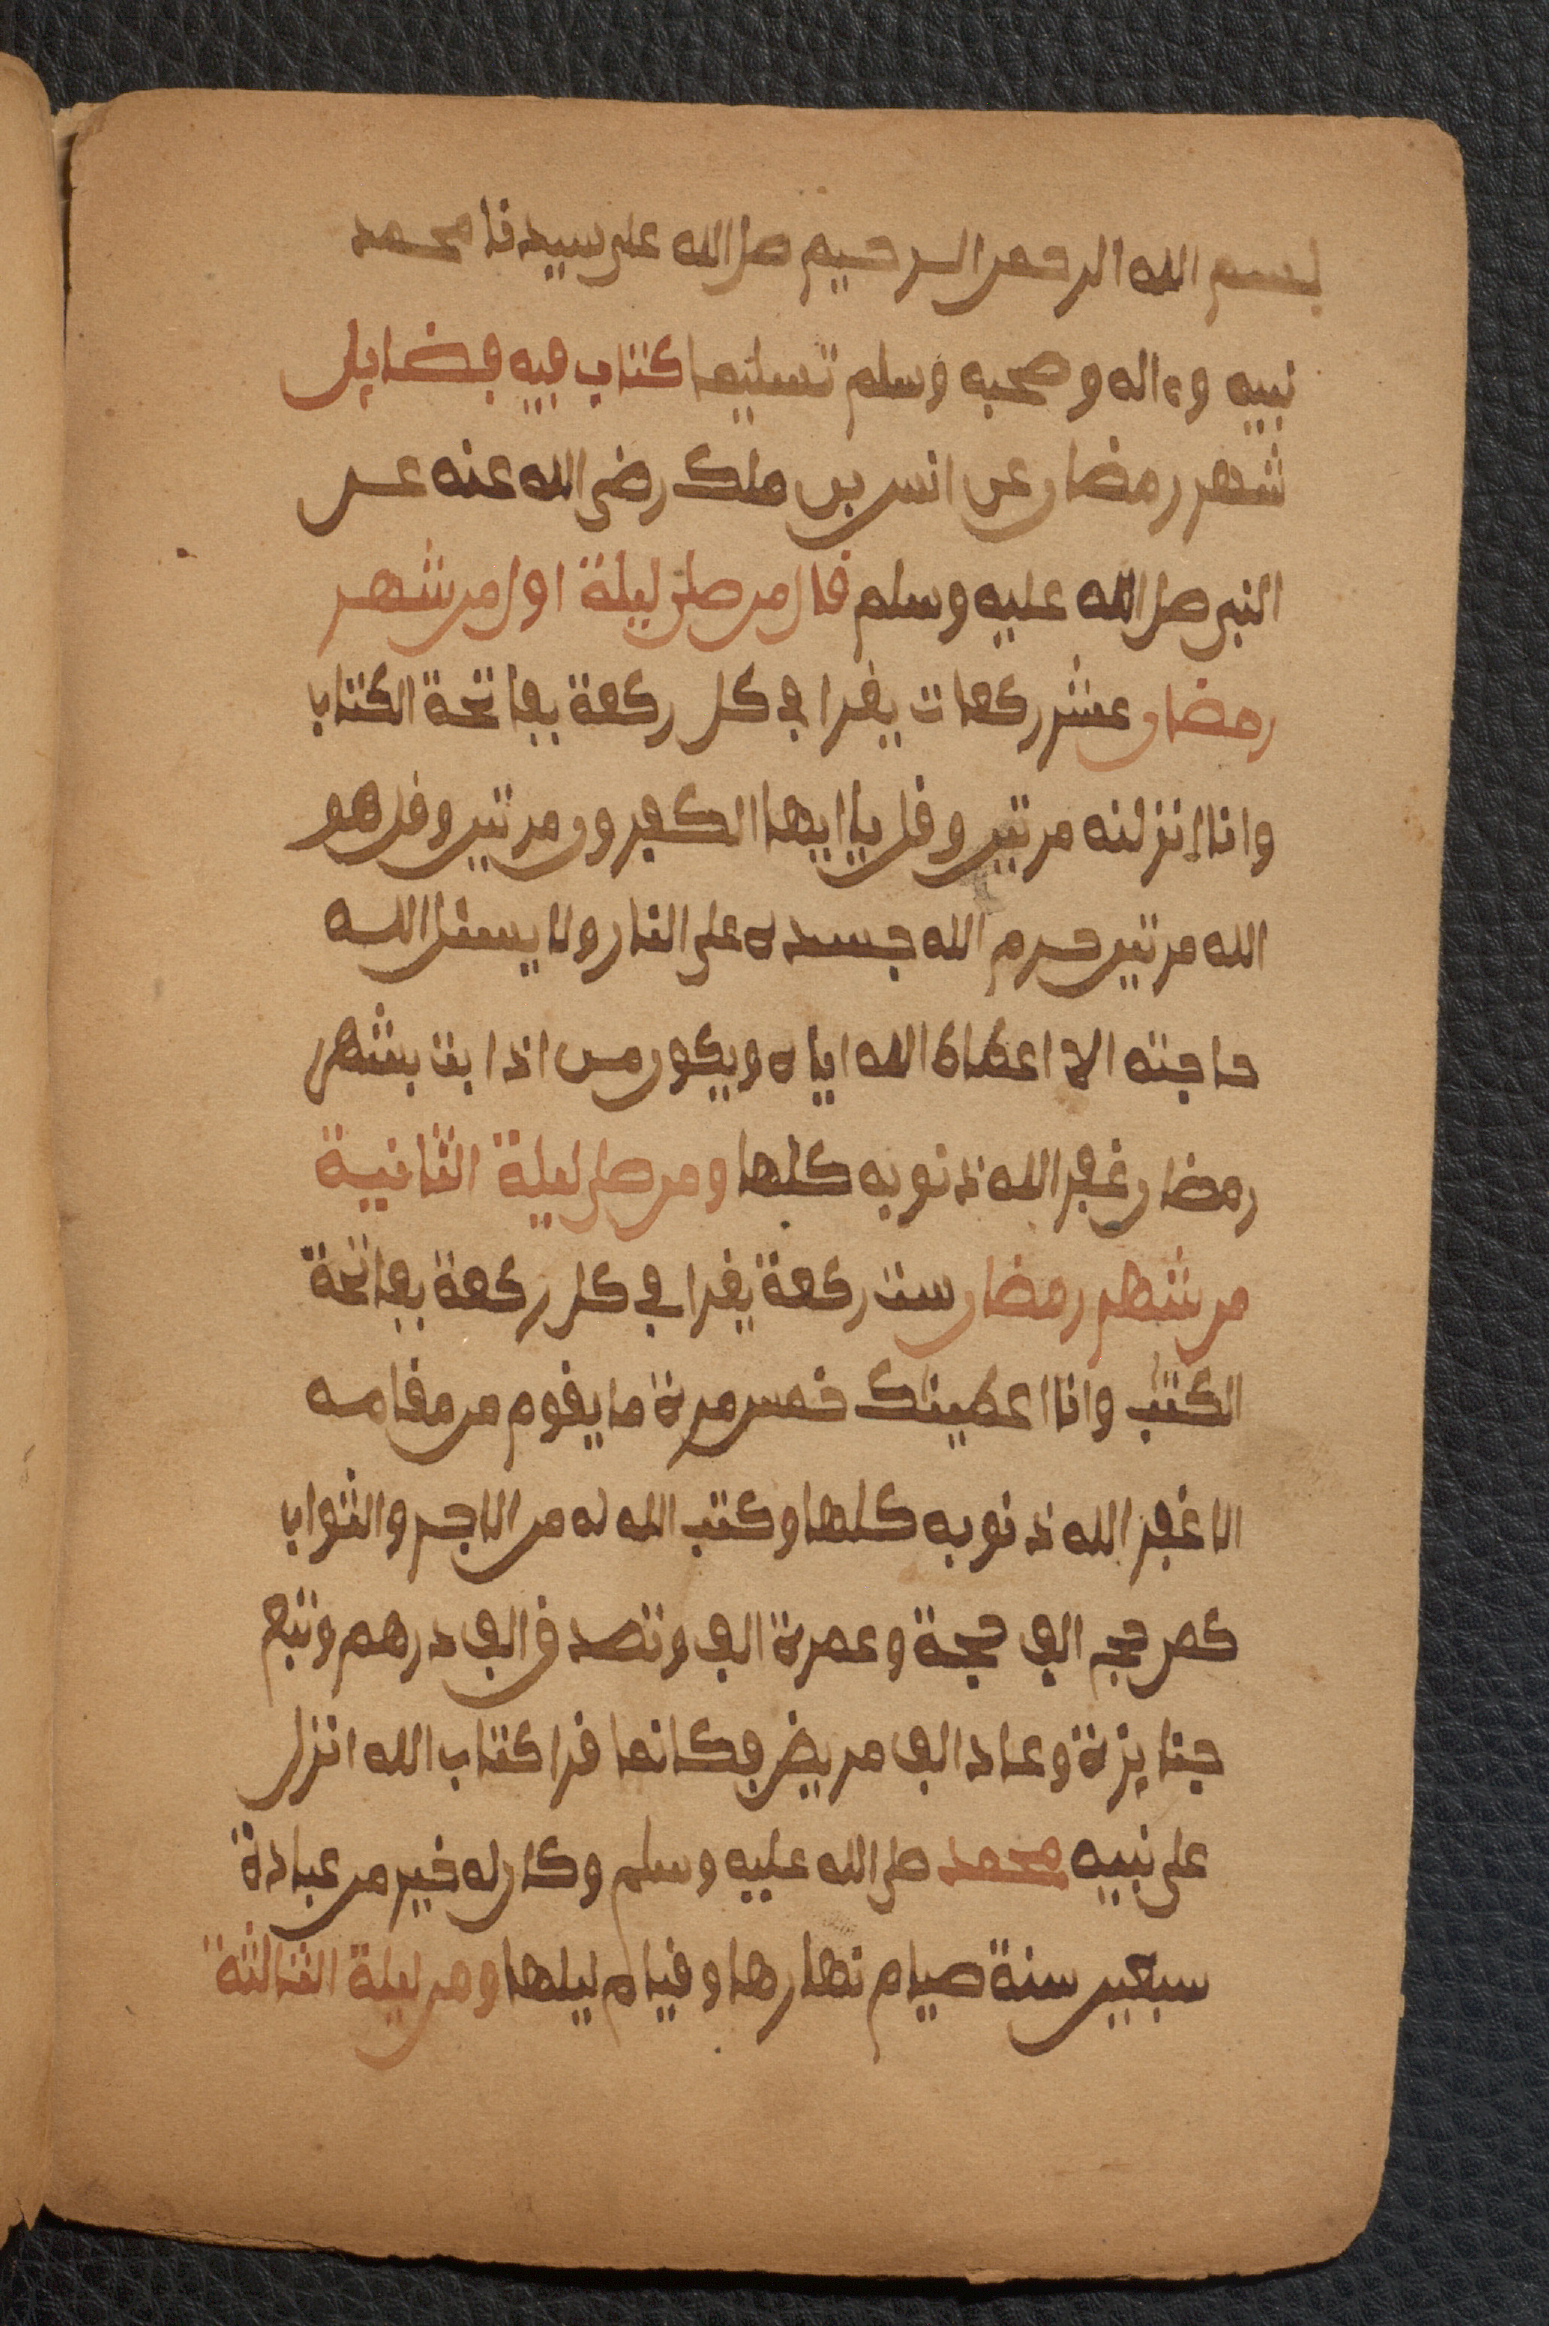 بسم الله الرحمن الرحيم صلى الله على سيدنا محمد
نبيه وءاله وصحبه وسلم تسليما كتاب فيه فضايل
شهر رمضان عن انس بن ملك رضي الله عنه عن
النبي صلى الله عليه وسلم قال من صلى ليلة اول من شهر
رمضان عشر ركعات يقرا في كل ركعة بفاتحة الكتاب
وانا انزلنه مرتين وقل يا ايها الكفرون مرتين وقل هو
الله مرتين حرم الله جسده على النار ولا يسئل الله
حاجته الا اعطاه الله اياه ويكون من اذا بت بشهر
رمضان غفر الله ذنوبه كلها ومن صلى ليلة الثانية
من شهر رمضان ست ركعة يقرا في كل ركعة بفاتحة
الكتب وانا اعطينك خمس مرة ما يقوم من مقامه
الا غفر الله ذنوبه كلها وكتب الله له من الاجر والثواب
كمن حج الف حجة وعمرة الف وتصدق الف درهم وتبع
جنايزة وعاد الف مريض فكانما قرا كتاب الله انزل
على نبيه محمد صلى الله عليه وسلم وكان له خير من عبادة
سبعين سنة صيام نهارها وقيام ليلها ومن ليلة الثالثة